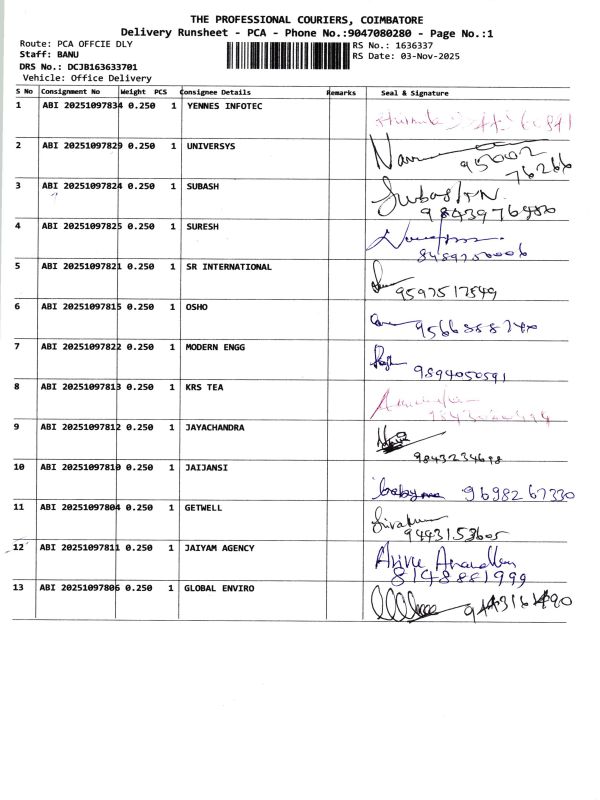 THE PROFESSIONAL COURIERS, COIMBATORE
Delivery Runsheet - PCA - Phone No.:9047080280 - Page No.:1
Route: PCA OFFCIE DLY
RS No.: 1636337
Staff: BANU
RS Date: 03-Nov-2025
DRS No.: DCJB163633701
Vehicle: Office Delivery
S No Consignment No Weight PCS Consignee Details Remarks Seal & Signature
1 ABI 20251097834 0.250 1 YENNES INFOTEC
2 ABI 20251097829 0.250 1 UNIVERSYS
95002
76266
3 ABI 20251097824 0.250 1 SUBASH
9843976480
4 ABI 20251097825 0.250 1 SURESH
5 ABI 20251097821 0.250 1 SR INTERNATIONAL
9597517549
6 ABI 20251097815 0.250 1 OSHO
7 ABI 20251097822 0.250 1 MODERN ENGG
9894050591
8 ABI 20251097813 0.250 1 KRS TEA
9 ABI 20251097812 0.250 1 JAYACHANDRA
10 ABI 20251097810 0.250 1 JAIJANSI
9698267330
11 ABI 20251097804 0.250 1 GETWELL
9443153605
12 ABI 20251097811 0.250 1 JAIYAM AGENCY
8148881999
13 ABI 20251097806 0.250 1 GLOBAL ENVIRO